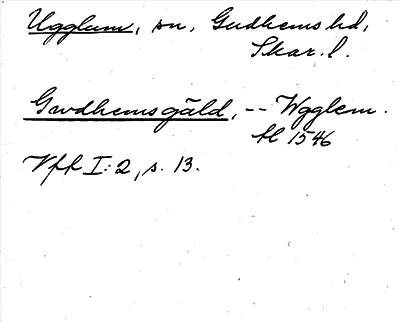 Ugglum, sn, Gudhems hd,
Skar. l.
Gwdhemsgäld, -- Wgglem.
1546
Vfk I:2, s. 13.